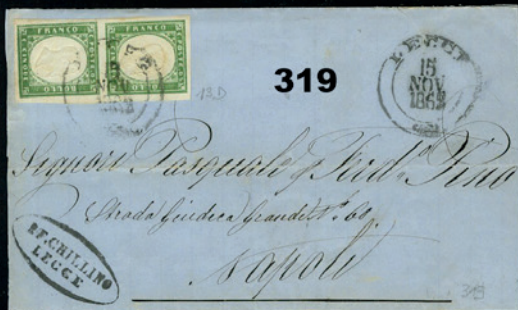 FRANCO FRANCO
13D
319
LECCE
15
NOV
1862
Signori Pasquale q. Ferd. Fino
Strada Giudeca Grande N. 60
Napoli
LECCE
319